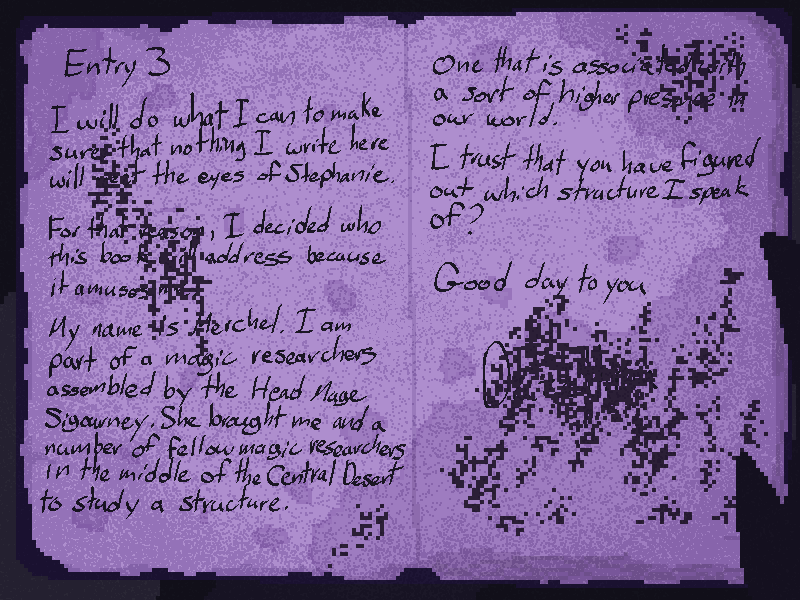 Entry 3
I will do what I can to make
sure that nothing I write here
will the eyes of Stephanie.
For that reason, I decided who
this book will address because
it amuses me.
My name is Merchel. I am
part of a magic researchers
assembled by the Head Mage
Sigourney. She brought me and a
number of fellow magic researchers
in the middle of the Central Desert
to study a structure.
One that is associated with
a sort of higher presence in
our world.
I trust that you have figured
out which structure I speak
of?
Good day to you